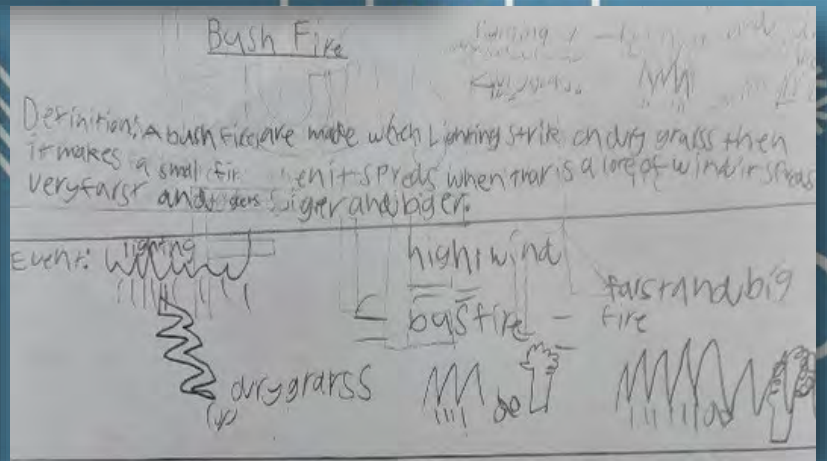 Bush Fire
Definition: A bush fire, are made which Lighting strike on dury gralss then
it makes a small fir enit spreds when thar is a lore of wind ir spreds
very farst and gers biger and biger.
Event: lighting
high wind
farst and big
busfire - fire
dury grarss